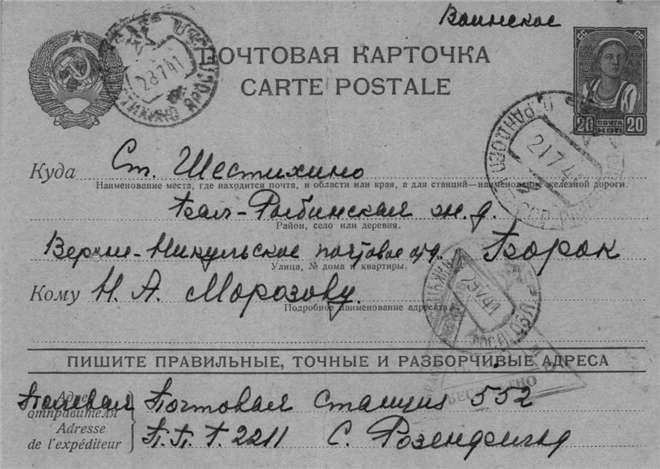 Воинское
ПОЧТОВАЯ КАРТОЧКА
CARTE POSTALE
СС СР
20 ПОЧТА КОП 20
28 7 41
21 7 41
Куда Ст. Шестихино
Наименование места, где находится почта, и области или края, а для станций—наименование железной дороги.
-Рыбинская ж.д.
Район, село или деревня.
Верхне-Никульское почтовое отд. Борок
Улица, № дома и квартиры.
Кому Н. А. Морозову.
Подробное наименование адресата
ПИШИТЕ ПРАВИЛЬНЫЕ, ТОЧНЫЕ И РАЗБОРЧИВЫЕ АДРЕСА
Полевая Почтовая Станция 552
Адрес отправителя
Adresse de l'expéditeur
П.П.Г. 2211 С. Розенфельд